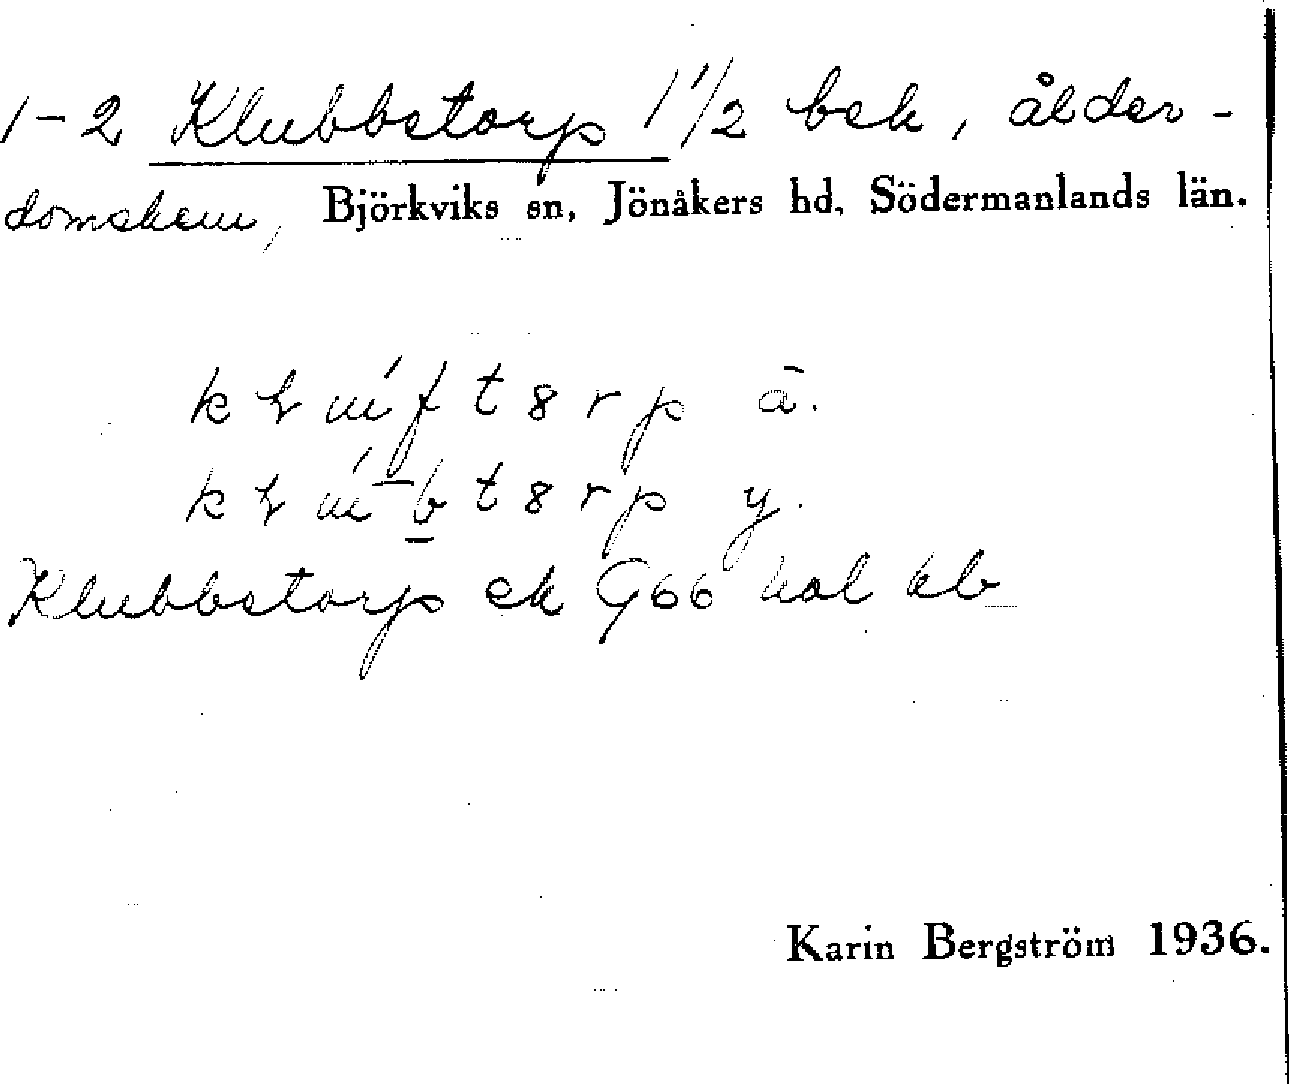 1-2 Klubbstorp 1 1/2 bek, ålder-
domshem, Björkviks sn, Jönåkers hd, Södermanlands län.
Klubbstorp ek G66 hal kb
Karin Bergström 1936.